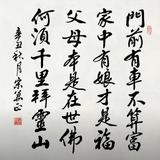 門前有車不算富
家中有娘才是福
父母本是在世佛
何須千里拜靈山
辛丑秋月宋